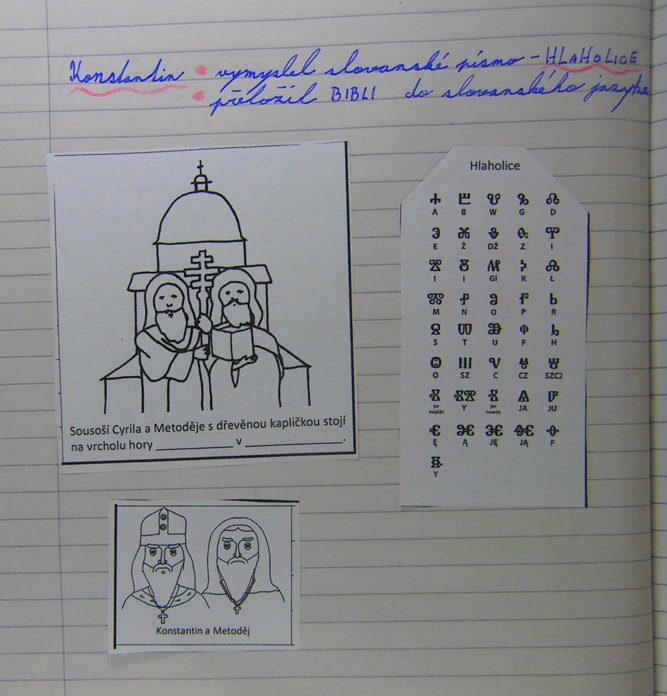 Konstantin • vymyslel slovanské písmo - HLAHOLICE
• přeložil BIBLI do slovanského jazyka
Sousoší Cyrila a Metoděje s dřevěnou kapličkou stojí
na vrcholu hory ____________ v ________________.
Konstantin a Metoděj
Hlaholice
A B W G D
E Ż DŻ Z I
I I GI K Ł
M N O P R
S T U F H
O SZ C CZ SZCZ
jer miękki Y jer twardy JA JU
Ę Ą JĘ JĄ F
Y